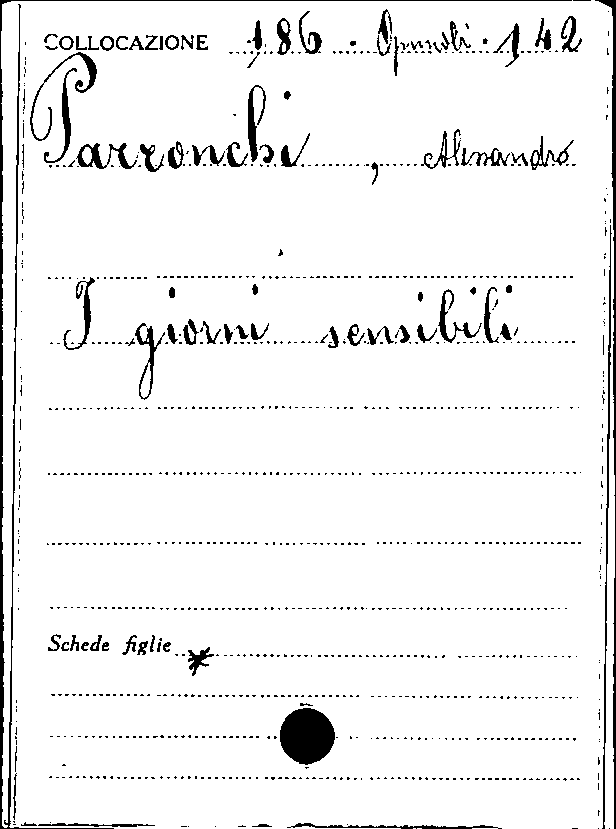 COLLOCAZIONE 186 . Opuscoli . 142
Parronchi , Alessandro
I giorni sensibili
Schede figlie *